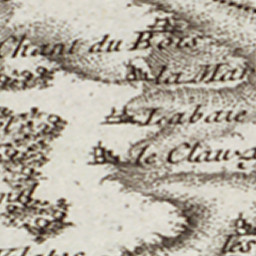 Chant du Bois
la Mar
Labaie
le Clau
les